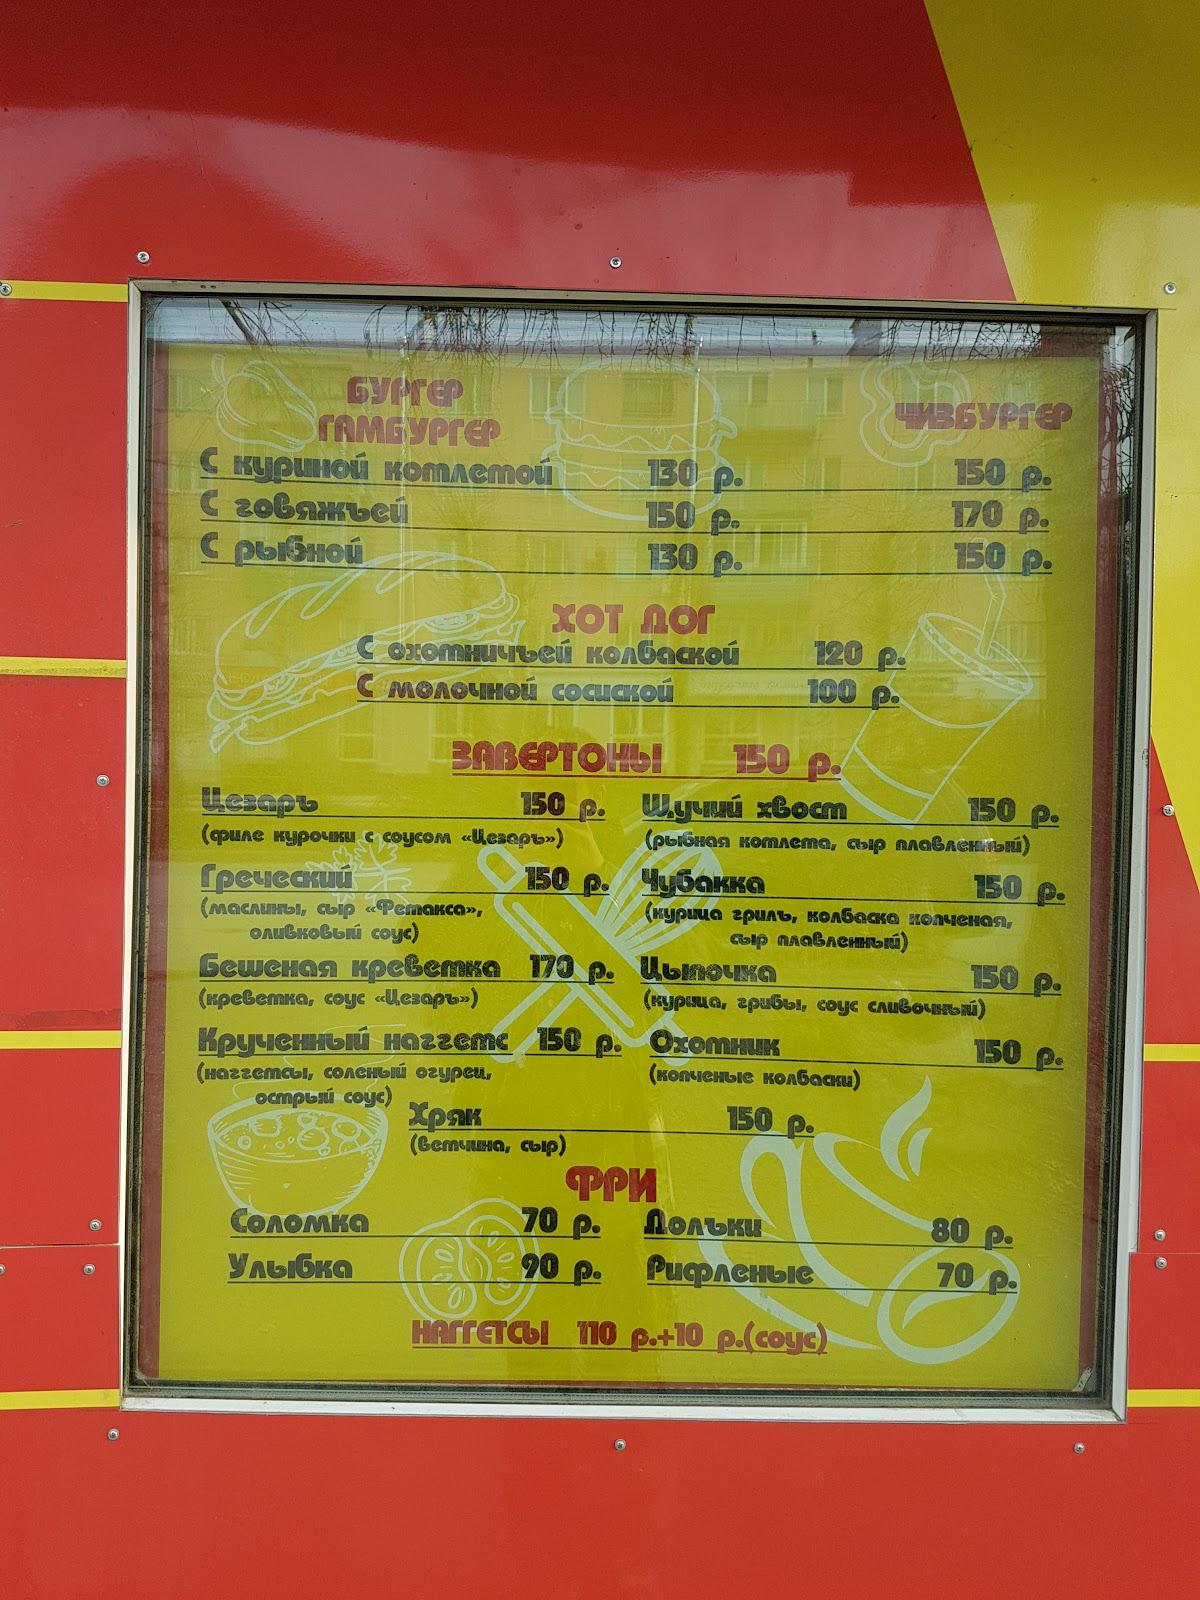 БУРГЕР
ГАМБУРГЕР ЧИЗБУРГЕР
С куриной котлетой 130 р. 150 р.
С говяжьей 150 р. 170 р.
С рыбной 130 р. 150 р.
ХОТ ДОГ
С охотничьей колбаской 120 р.
С молочной сосиской 100 р.
ЗАВЕРТОНЫ 150 р.
Цезарь 150 р.
(филе курочки с соусом «Цезарь»)
Греческий 150 р.
(маслины, сыр «Фетакса»,
оливковый соус)
Бешеная креветка 170 р.
(креветка, соус «Цезарь»)
Крученный наггетс 150 р.
(наггетсы, соленый огурец,
острый соус)
Щучий хвост 150 р.
(рыбная котлета, сыр плавленный)
Чубакка 150 р.
(курица гриль, колбаска копченая,
сыр плавленный)
Цыпочка 150 р.
(курица, грибы, соус сливочный)
Охотник 150 р.
(копченые колбаски)
Хряк 150 р.
(ветчина, сыр)
ФРИ
Соломка 70 р. Дольки 80 р.
Улыбка 90 р. Рифленые 70 р.
НАГГЕТСЫ 110 р.+10 р.(соус)